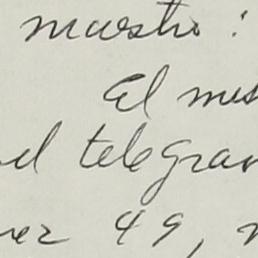 maestro:
El mis
el telegram
er 49,